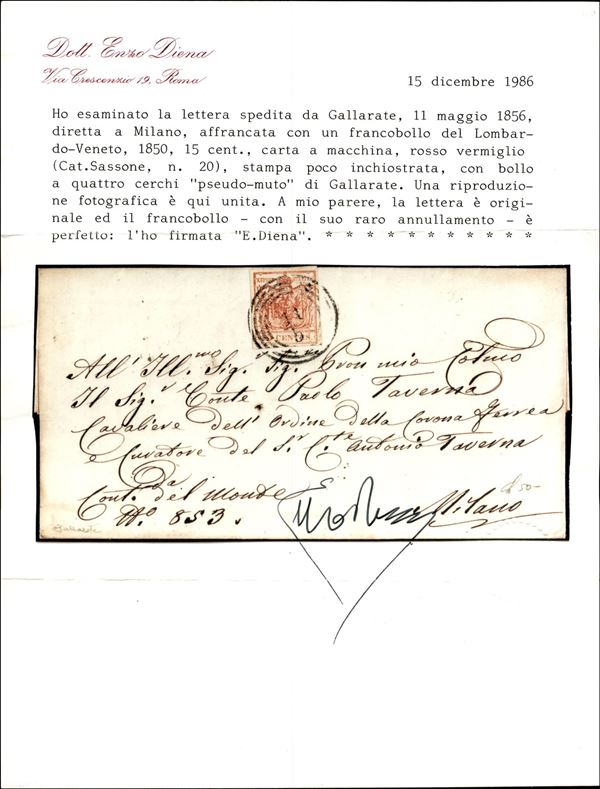 Dott. Enzo Diena
Via Crescenzio 19, Roma
15 dicembre 1986
Ho esaminato la lettera spedita da Gallarate, 11 maggio 1856,
diretta a Milano, affrancata con un francobollo del Lombar-
do-Veneto, 1850, 15 cent., carta a macchina, rosso vermiglio
(Cat.Sassone, n. 20), stampa poco inchiostrata, con bollo
a quattro cerchi "pseudo-muto" di Gallarate. Una riproduzio-
ne fotografica è qui unita. A mio parere, la lettera è origi-
nale ed il francobollo - con il suo raro annullamento - è
perfetto: l'ho firmata "E.Diena". * * * * * * * * * * *
11
5
CENTES
All' Ill.mo Sig. Sig. Pron mio Colmo
Il Sig.r Conte Paolo Taverna
Cavaliere dell' Ordine della Corona Ferrea
e Curatore del S.r C.te Antonio Taverna
Da
Cont. del Monte
No. 853.
Milano